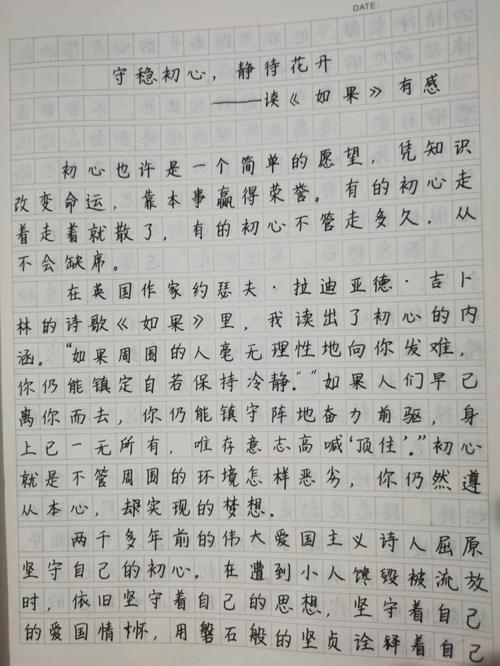 DATE:
守稳初心，静待花开
——读《如果》有感
初心也许是一个简单的愿望，凭知识
改变命运，靠本事赢得荣誉。有的初心走
着走着就散了，有的初心不管走多久，从
不会缺席。
在英国作家约瑟夫·拉迪亚德·吉卜
林的诗歌《如果》里，我读出了初心的内
涵。“如果周围的人毫无理性地向你发难，
你仍能镇定自若保持冷静。”“如果人们早已
离你而去，你仍能镇守阵地奋力前驱，身
上已一无所有，唯存意志高喊‘顶住’。”初心
就是不管周围的环境怎样恶劣，你仍然遵
从本心，却实现的梦想。
两千多年前的伟大爱国主义诗人屈原
坚守自己的初心。在遭到小人馋毁被流放
时，依旧坚守着自己的思想，坚守着自己
的爱国情怀，用磐石般的坚贞诠释着自己